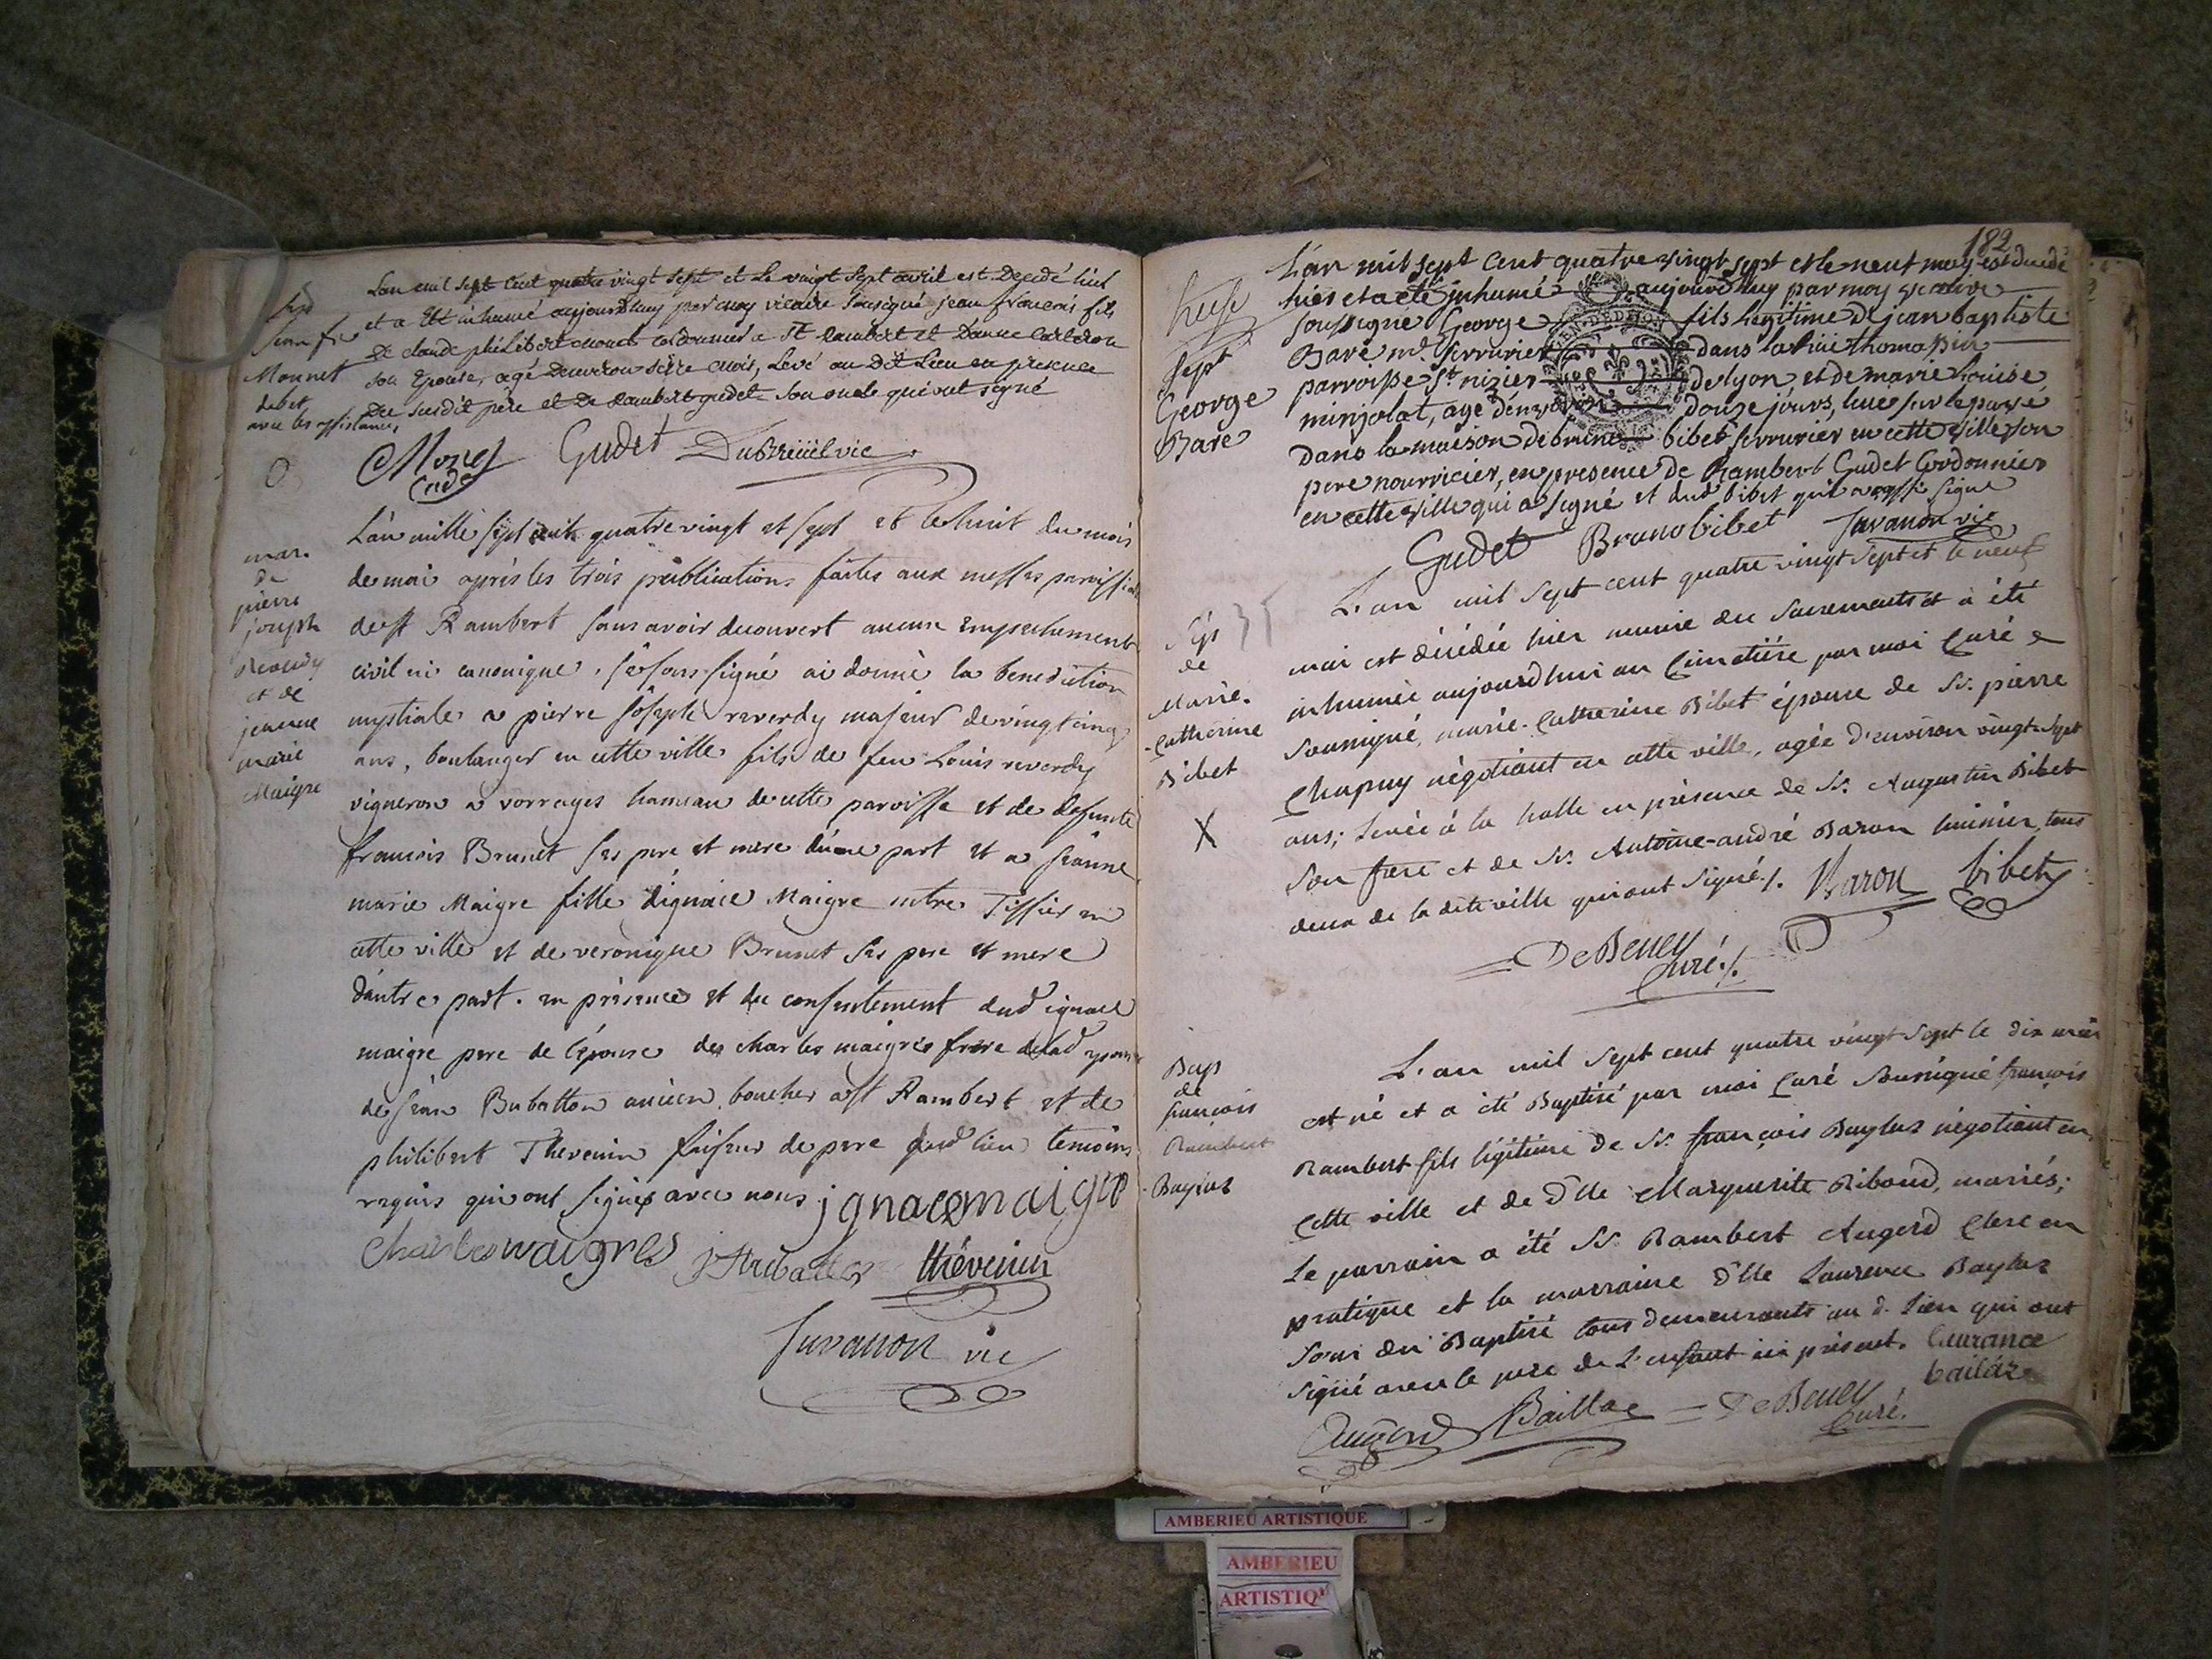 Sep
Jean fr
Monnet
debet
avec les assistances
L'an mil sept cent quatre vingt sept et le vingt sept avril est decedé hier
et a été inhumé aujourd'huy par moy vicaire soussigné jean francois fils
de claude philibert monet cordonnier a St rambert et Danne
son epouse, agé denviron seize mois, levé au dit Lieu en presence
du susdit père et de rambert gudet son oncle qui ont signé
Monet Gudet Dubreüil vic
mar.
de
pierre
joseph
Reverdy
et de
jeanne
marie
Maigre
L'an mille sept cent quatre vingt et sept et le huit du mois
de mai après les trois publications faites aux messes paroissiales
de st Rambert sans avoir decouvert aucun empechement
civil ni canonique, je soussigné ai donné la benediction
nuptiale a pierre joseph reverdy majeur de vingt cinq
ans, boulanger en cette ville fils de feu Louis reverdy
vigneron a vorrages hameau de cette paroisse et de defunte
francois Brunet ses pere et mere d'une part et a jeanne
marie Maigre fille d'ignace Maigre mtre Tissier en
cette ville et de veronique Brunet ses pere et mere
d'autre part. en présence et du consentement dud ignace
maigre pere de l'épouse de charles maigre frere de lad epouse
de jean Bubatton ancien boucher a st Rambert et de
philibert Thevenin faiseur de pere dud lieu temoins
requis qui ont signés avec nous ignace maigre
charles maigres thévenin
Juvanon vic
182
Sept
George
Bare
L'an mil sept cent quatre vingt sept et le neuf may est decedé
hier et a eté inhumé aujourd'huy par moy vicaire
soussigné George fils legitime de jean baptiste
Baré md. serrurier dans la rüe thomassin
parroisse st nizier de lyon et de marie louise
minjolat, agé d'environ douze jours, levé sur le pavé
dans la maison de bruno bibet serrurier en cette ville son
pere nourricier, en presence de Rambert Gudet Cordonnier
en cette ville qui a signé et dud bibet qui a aussi signé
Gudet Bruno bibet Juvanon vic
Sep 35
de
Marie.
Catherine
Bibet
X
L'an mil sept cent quatre vingt sept et le neuf
mai est décédée hier munie des Sacrements et a été
inhumée aujourd'hui au Cimetière par moi Curé
soussigné, marie-Catherine Bibet épouse de Sr. pierre
Chapuy négotiant en cette ville, agée d'environ vingt-sept
ans; levée à la halle en présence de Sr. Augustin Bibet
son frere et de Sr. Antoine-andré Baron huissier, tous
deux de la dite ville qui ont signé./. Baron bibet
De Beney
Curé./.
Bap
de
françois
Rambert
Baylaz
L'an mil sept cent quatre vingt sept le dix mai
est né et a été Baptisé par moi Curé soussigné françois
Rambert fils légitime de Sr. françois Baylaz négotiant en
cette ville et de Dlle Marguerite Riboud, mariés;
Le parrain a été Sr. Rambert Augerd Clerc en
pratique et la marraine Dlle Laurence Baylaz
soeur du Baptisé tous demeurants au d. lieu qui ont
signé avec le pere de l'enfant ici présent. laurance
bailaz
Augerd Baillac De Beney
Curé.
AMBERIEU ARTISTIQUE
AMBERIEU
ARTISTIQ